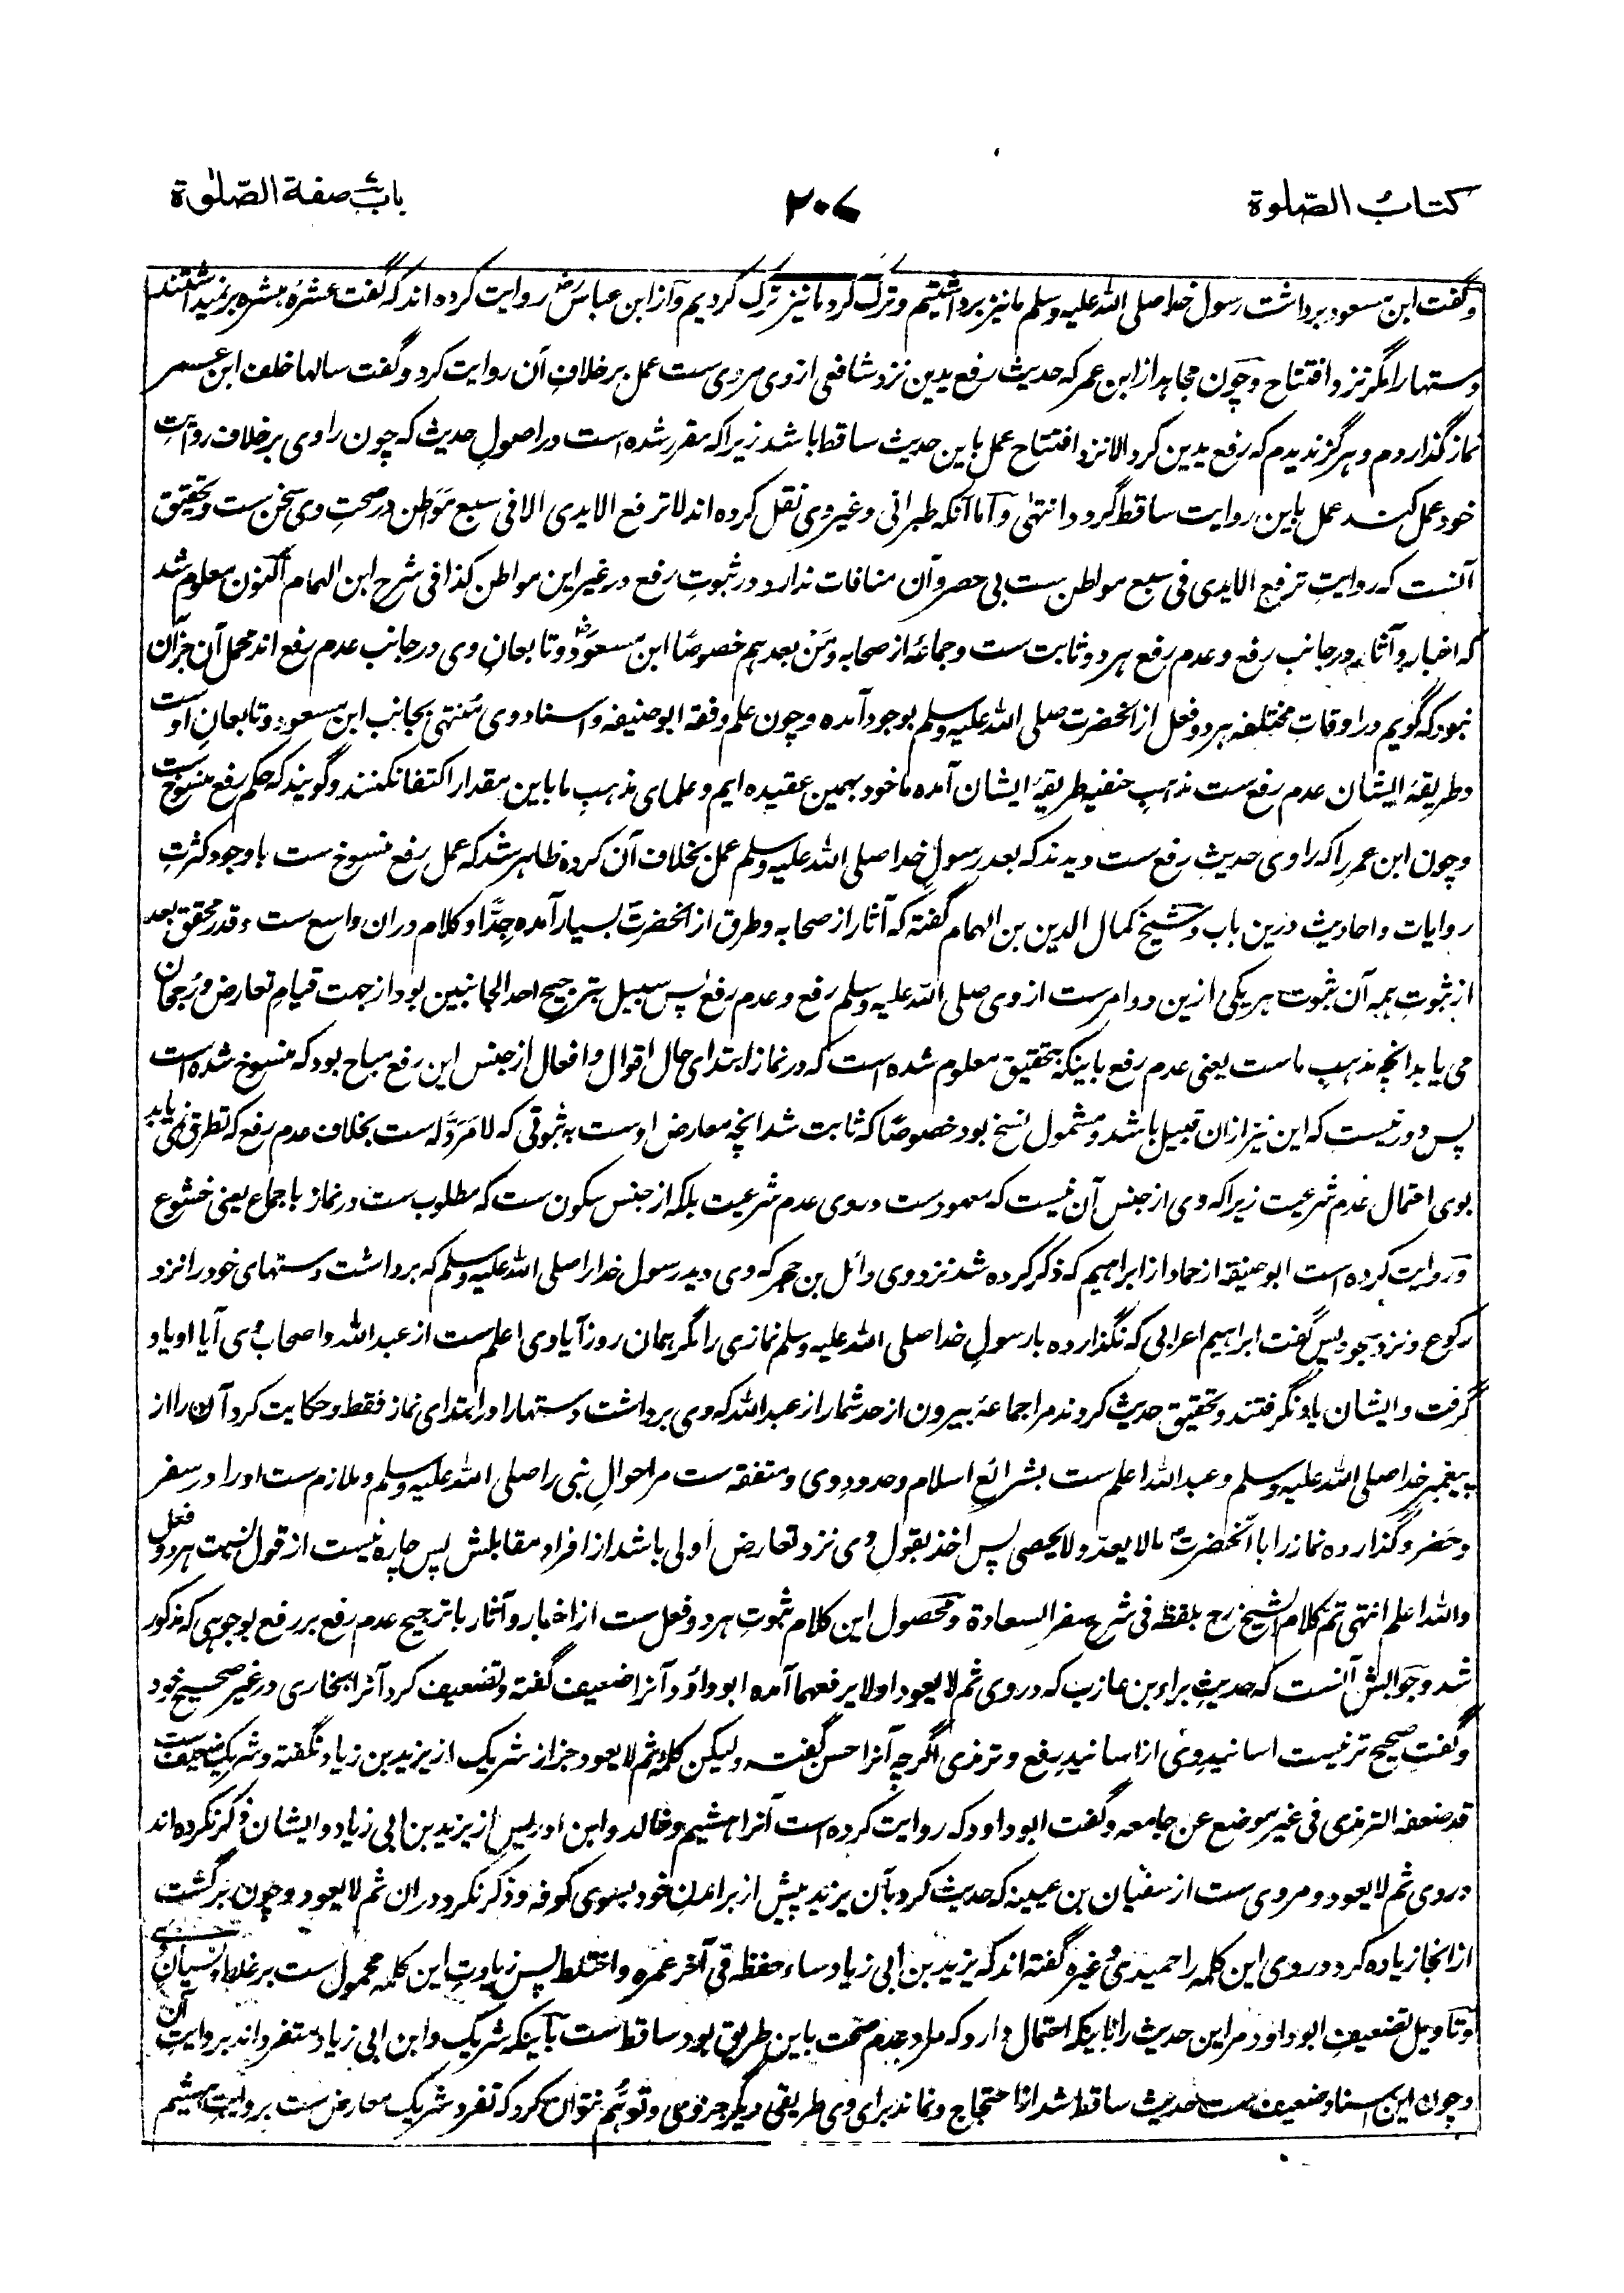 كتاب الصّلوة
٢٠٧
باب صفة الصّلٰوة
و گفت ابن مسعود برداشت رسول خدا صلى الله عليه وسلم ما نیز برداشتیم و ترک کرد ما نیز ترک کردیم و از ابن عباس رض روایت کرده اند که گفت عشرهٔ مبشره برنمیداشتند
دستها را مگر نزد افتتاح و چون مجاهد از ابن عمر که حدیث رفع یدین نزد شافعی از وی مروی ست عمل بر خلاف آن روایت کرد و گفت سالها خلف ابن عمر
نماز گذاردم و هرگز ندیدم که رفع یدین کرد الا نزد افتتاح عمل باین حدیث ساقط باشد زیرا که مقرر شده است در اصول حدیث که چون راوی بر خلاف روایت
خود عمل کند عمل باین روایت ساقط گردد انتهی و اما آنکه طبرانی و غیر وی نقل کرده اند لا ترفع الایدی الا فی سبع مواطن در صحت وی سخن ست و تحقیق
آنست که روایت ترفع الایدی فی سبع مواطن ست بی حصر و آن منافات ندارد در ثبوت رفع در غیر این مواطن کذا فی شرح ابن الهمام اکنون معلوم شد
که اخبار و آثار در جانب رفع و عدم رفع هر دو ثابت ست و جماعهٔ از صحابه و من بعدهم خصوصًا ابن مسعود رض و تابعان وی در جانب عدم رفع اند محمل آن جز آن
نبود که گویم در اوقات مختلفه هر دو فعل از آنحضرت صلی الله علیه وسلم بوجود آمده و چون علم و فقه ابو حنیفه و اسناد وی منتهی بجانب ابن مسعود و تابعان اوست
و طریقهٔ ایشان عدم رفع ست مذهب حنفیه طریقهٔ ایشان آمده ما خود بهمین عقیده ایم و علمای مذهب ما باین مقدار اکتفا نکنند و گویند که حکم رفع منسوخ ست
و چون ابن عمر را که راوی حدیث رفع ست دیدند که بعد رسول خدا صلی الله علیه وسلم عمل بخلاف آن کرده ظاهر شد که عمل رفع منسوخ ست با وجود کثرت
روایات و احادیث درین باب و شیخ کمال الدین بن الهمام گفته که آثار از صحابه و طرق از آنحضرت بسیار آمده جدًّا و کلام دران واسع ست و قدر محقق بعد
از ثبوت همه آن ثبوت هر یکی ازین دو امر ست از وی صلی الله علیه وسلم رفع و عدم رفع پس سبیل بترجیح احد الجانبین بود از جهت قیام تعارض و رجحان
می یابد آنچه مذهب ماست یعنی عدم رفع باینکه بتحقیق معلوم شده است که در نماز ابتدای حال اقوال و افعال از جنس این رفع مباح بود که منسوخ شده است
پس دور نیست که این نیز ازان قبیل باشد و مشمول نسخ بود خصوصًا که ثابت شد آنچه معارض اوست به ثبوتی که لا مرد له ست بخلاف عدم رفع که تطرق نمی یابد
بوی احتمال عدم شرعیت زیرا که وی از جنس آن نیست که معهودست در وی عدم شرعیت بلکه از جنس سکون ست که مطلوب ست در نماز باجماع یعنی خشوع
و روایت کرده است ابو حنیفه از حماد از ابراهیم که ذکر کرده شد نزد وی وائل بن حجر که وی دید رسول خدا را صلی الله علیه وسلم که برداشت دستهای خود را نزد
رکوع و نزد سجود پس گفت ابراهیم اعرابی که نگذارده با رسول خدا صلی الله علیه وسلم نمازی را مگر همان روز آیا وی اعلم ست از عبد الله و اصحاب وی آیا او یاد
گرفت و ایشان یاد نگرفتند و تحقیق حدیث کردند مرا جماعهٔ بیرون از حد شمار از عبد الله که وی برداشت دستها را در ابتدای نماز فقط و حکایت کرد آن را از
پیغمبر خدا صلی الله علیه وسلم و عبد الله اعلم ست بشرائع اسلام و حدود وی و متفقه ست مر احوال نبی را صلی الله علیه وسلم و ملازم ست او را در سفر
و حضر و گذارده نماز را با آنحضرت ما لا یعد و لا یحصی پس اخذ بقول وی نزد تعارض اولی باشد از افراد مقابلش پس چاره نیست از قول بسنیت هر دو فعل
والله اعلم انتهی تم کلام الشیخ رح بلفظه فی شرح سفر السعادة و محصول این کلام ثبوت هر دو فعل ست از اخبار و آثار با ترجیح عدم رفع بر رفع بوجوهی که مذکور
شد و جوابش آنست که حدیث براء بن عازب که در وی ثم لا یعود او لا یرفعهما آمده ابو داؤد آنرا ضعیف گفته و تضعیف کرد آنرا بخاری در غیر صحیح خود
و گفت صحیح تر نیست اسانید وی از اسانید رفع و ترمذی اگرچه آنرا حسن گفته و لیکن کلمهٔ ثم لا یعود جز از شریک از یزید بن زیاد نگفته و شریک ضعیف ست
قد ضعفه الترمذی فی غیر موضع عن جامعه و گفت ابو داود که روایت کرده است آنرا هشیم و خالد و ابن ادریس از یزید بن ابی زیاد و ایشان ذکر نکرده اند
در وی ثم لا یعود و مروی ست از سفیان بن عیینه که حدیث کرد بآن یزید پیش از برآمدن خود بسوی کوفه و ذکر نکرد دران ثم لا یعود و چون برگشت
از انجا زیاده کرد در وی این کلمه را حمیدی و غیره گفته اند که یزید بن ابی زیاد ساء حفظه فی آخر عمره و اختلط پس زیادت این کلمه محمول ست بر غلط و نسیان
و تاویل تضعیف ابو داود مر این حدیث را باینکه احتمال دارد که مراد عدم صحت باین طریق بود ساقط ست باینکه شریک و ابن ابی زیاد متفرد اند بروایت آن
و چون این اسناد ضعیف ست حدیث ساقط شد از احتجاج و نماند برای وی طریقی دیگر جز وی و توهم نتوان کرد که تفرد شریک معارض ست بروایت هشیم